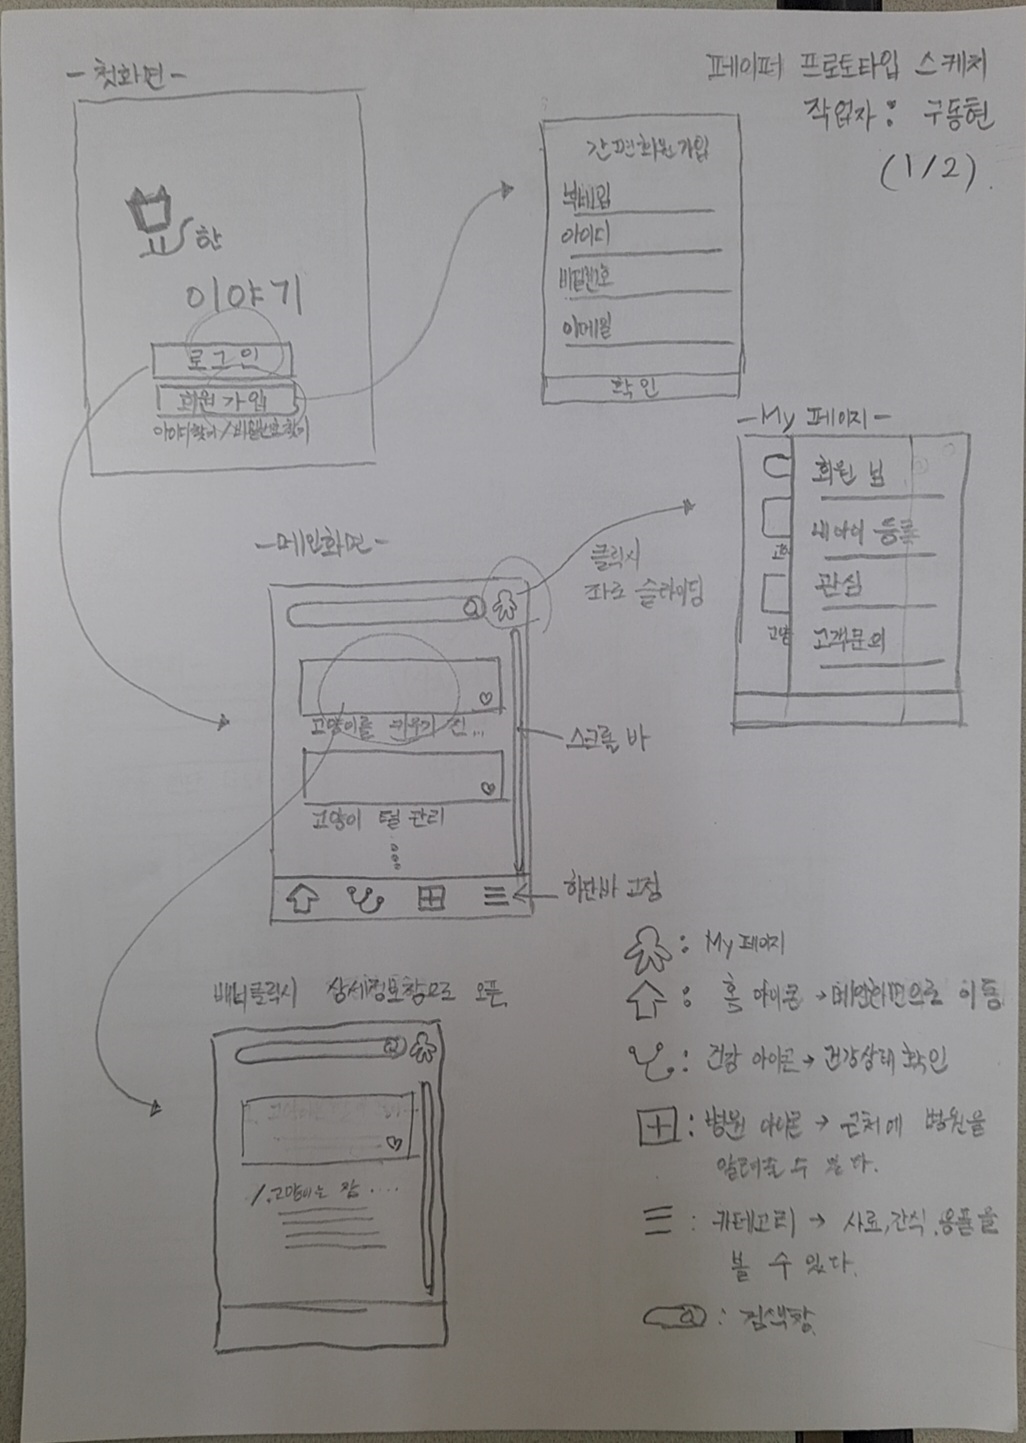 페이퍼 프로토타입 스케치
작업자 : 구동현
(1/2).
- 첫화면 -
묘한
이야기
로그인
회원가입
아이디찾기/비밀번호찾기
간편회원가입
닉네임
아이디
비밀번호
이메일
확인
- My 페이지 -
회원 님
내아이 등록
관심
고객문의
고양
- 메인화면 -
클릭시
좌로 슬라이딩
고양이를 키우기 전...
고양이 털 관리
스크롤 바
하단바 고정
배너클릭시 상세정보창으로 오픈
1. 고양이는 잠 ....
: My 페이지
: 홈 아이콘 → 메인화면으로 이동
: 건강 아이콘 → 건강상태 확인
: 병원 아이콘 → 근처에 병원을
알려줄 수 있다.
: 카테고리 → 사료, 간식, 용품을
볼 수 있다.
: 검색창